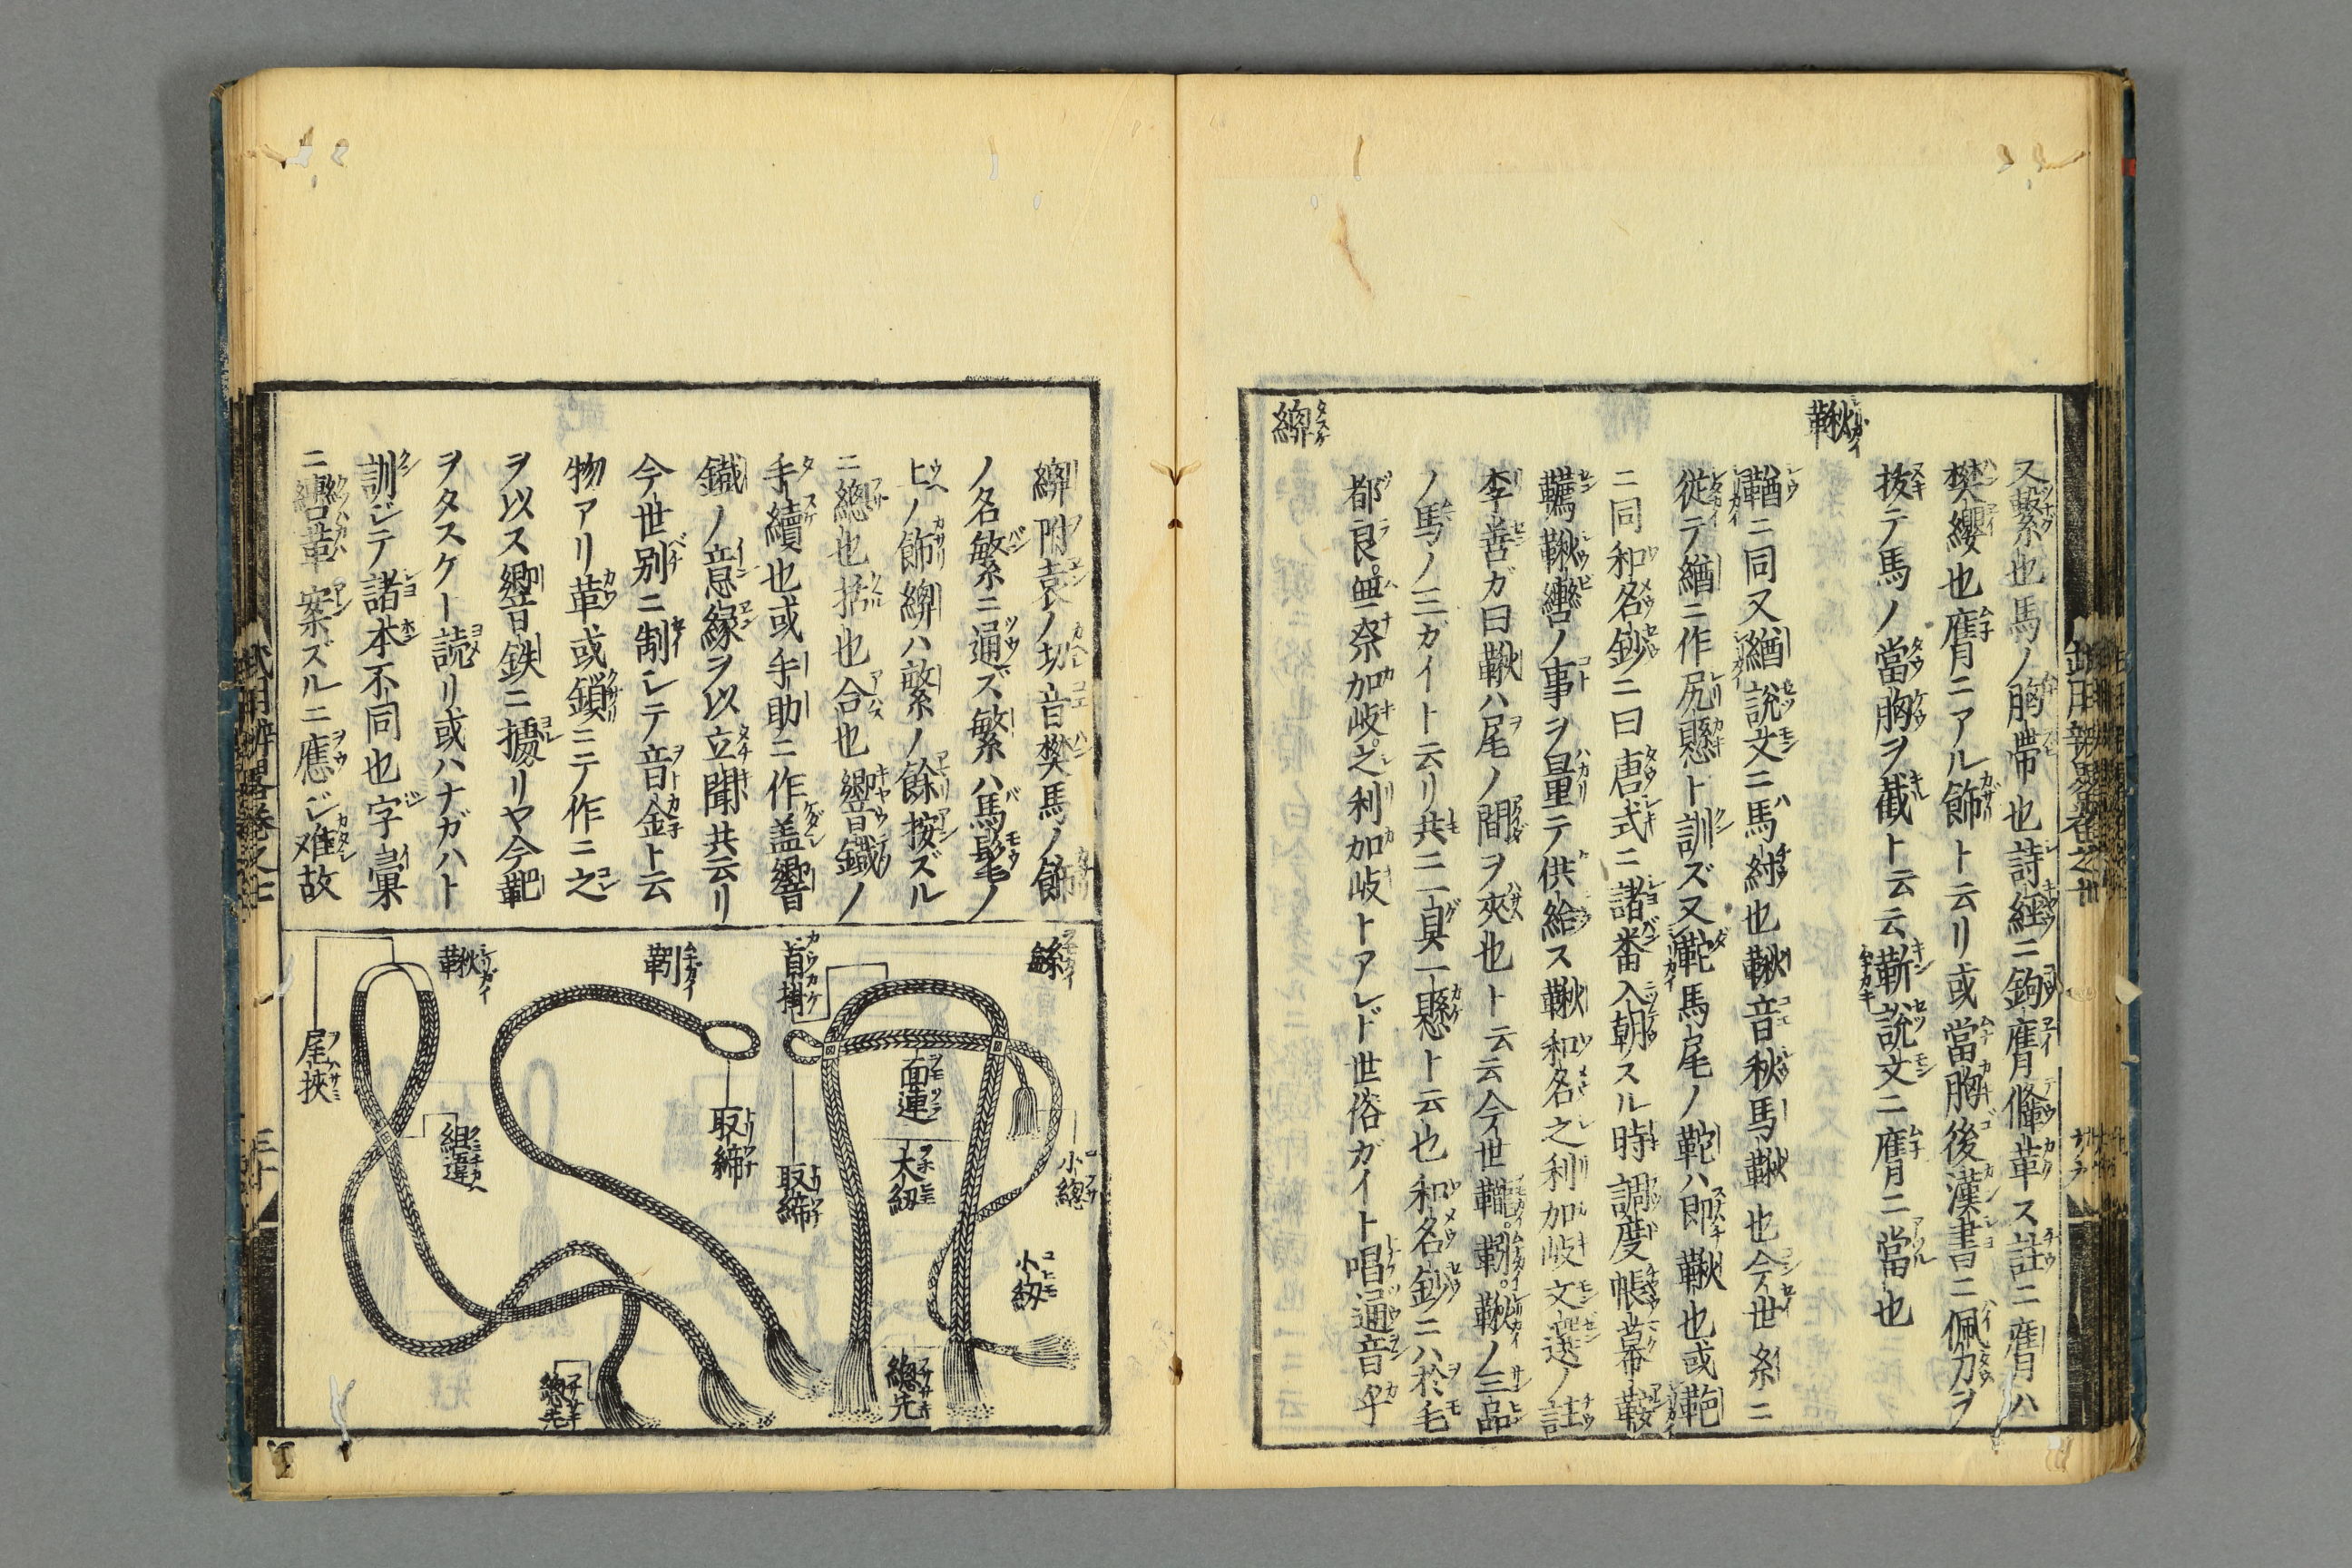 ス繋也馬ノ胸帯也詩經ニ鉤膺鞗革ス註ニ膺ハ
樊纓也膺ニアル飾ト云リ或當胸後漢書ニ佩刀ヲ
抜テ馬ノ當胸ヲ截ト云云靳說文ニ膺ニ當ル也
鞦
鞧ニ同又緧說文ニ馬紂也鞦音秋馬鞦也今世糸ニ
従テ緧ニ作尻懸ト訓ズ又鞁馬尾ノ鞁ハ即鞦也或
ニ同和名鈔ニ曰唐式ニ諸番入朝スル時調度帳幕鞍
韉鞦轡ノ事ヲ量テ供給ス鞦和名之利加岐文選ノ註
李善ガ曰鞦ハ尾ノ間ヲ夾也ト云云今世鞦ノ三品
ノ馬ノ三ガイト云リ共ニ一具一懸ト云也和名鈔ニハ於毛
都良無奈加岐之利加岐トアレド世俗ガイト唱通音乎
附袁ノ切音樊馬ノ飾
ノ名繁ニ通ズ繁ハ馬髦ノ
ヒノ飾ハ繁ノ餘按ズル
ニ總也括也合也響鐡ノ
手續也或手助ニ作盖響
鐡ノ音緣ヲ以立聞共云リ
今世別ニ制シテ音金ト云
物アリ革或鎖ニテ作ニ之
ヲ以ス響鉄ニ擾リヤ今
ヲタスケト読リ或ハナガハト
訓ジテ諸本不同也字彙
ニ革案ズルニ應ジ難故
首掛
面連
大紐
小總
小紐
總先
取緒
靷
取緒
鞦
尾挾
組違
總先
三十